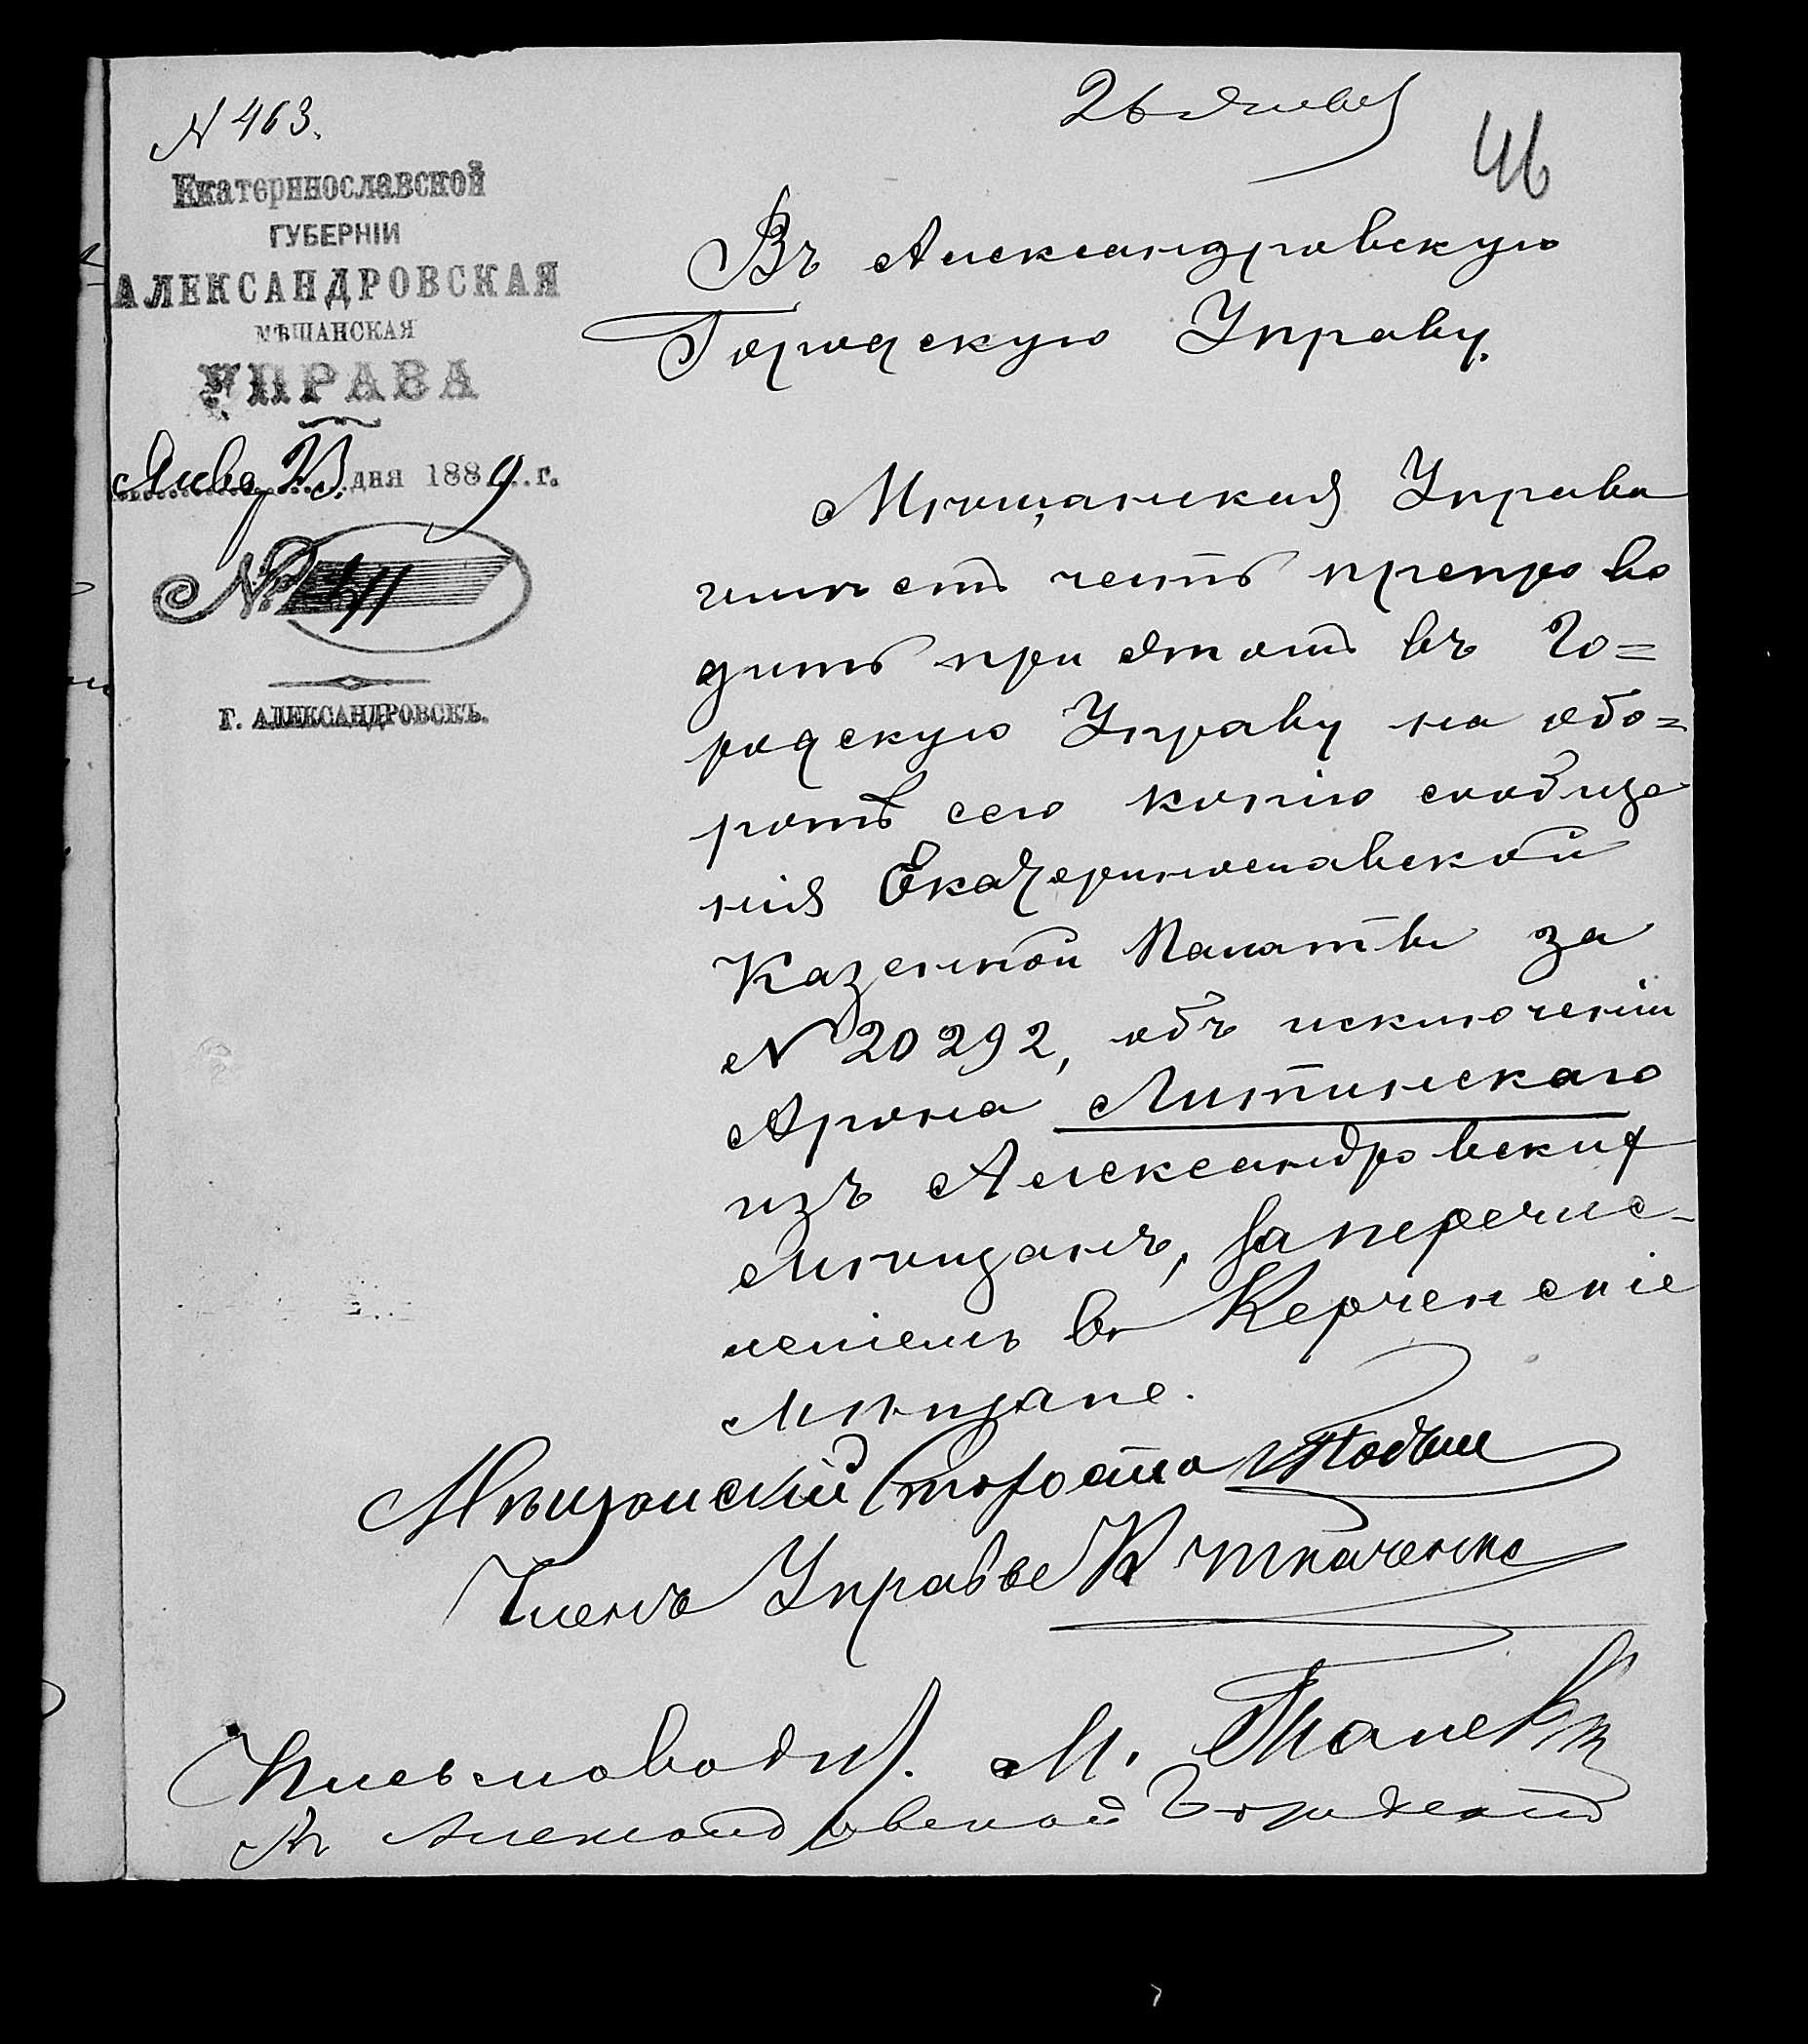 N 463.
26 Январ
46
Екатеринославской
ГУБЕРНІИ
АЛЕКСАНДРОВСКАЯ
МѢЩАНСКАЯ
УПРАВА
Январ 23 дня 1889 г.
№ 41
Г. АЛЕКСАНДРОВСКЪ.
Въ Александровскую
Городскую Управу.
Мѣщанская Управа
имѣетъ честь препрово
дить при этомъ въ Го=
родскую Управу на обо=
ротѣ сего копію сообще
нія Екатеринославской
Казенной Палаты за
N 20292, объ исключеніи
Арона Литинскаго
изъ Александровских
Мѣщанъ, за перечис-
леніемъ въ Керченскіе
Мѣщане.
Мѣщанскій Староста
Членъ Управы К Ткаченко
Письмовод. М.
Въ Александровской Городской